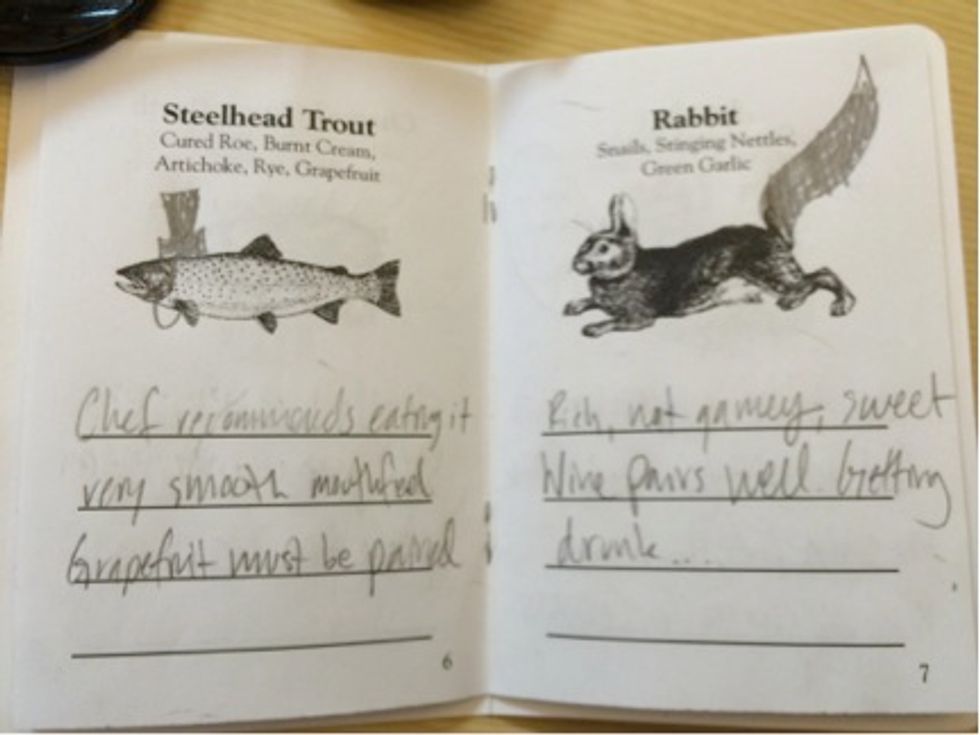 Steelhead Trout
Cured Roe, Burnt Cream,
Artichoke, Rye, Grapefruit
Chef recommends eating it
very smooth mouthfeel
Grapefruit must be paired
6
Rabbit
Snails, Stinging Nettles,
Green Garlic
Rich, not gamey, sweet
Wine pairs well. Getting
drunk...
7